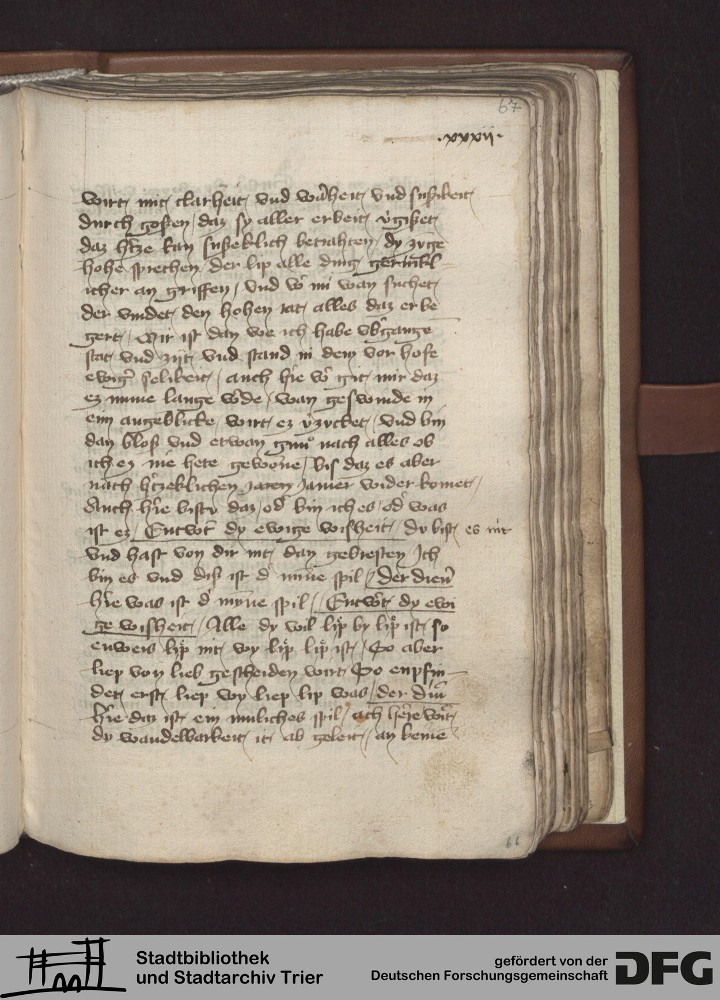 67
·xxxij·
wirt mit clarheit vnd warheit vnd sußikeit
durch gosßen / daz sy aller erbeit v̓gißet
daz h̓tze kan sußeklich betrahten / dy zvge
hohe sprechen der lip alle ding
icher an griffen / vnd wan suchet
der vindet den hohen rat alles daz er be
gert / Mir ist dan we ich habe vb̓gange
stat vnd zijt vnd stand in dem vor hofe
ewig̓ selikeit / auch h̓re git mir daz
ez nvme lange w̓de / wan geswinde in
eim augeblicke / wirt ez v̓zvcket / vnd bin
dan bloß vnd etwan nach alles ob
ich ez nie hete gewone / bis daz es aber
nach h̓tzeklichen Jamer wider komet /
Auch h̓re bistv daz / od̓ bin ich es / od̓ was
ist ez / Entw̓t dy ewige wisheit / Dv bist es nit
vnd hast von dir nit dan gebresten / Ich
bin es vnd diß ist d̓ mīne spil / Der dien̓
h̓re was ist d̓ mȳne spil // Entw̓t dy ewi
ge wisheit / Alle dy wil lip by lip ist / so
enweis lip nit wy lip lip ist / So aber
liep von lieb gescheiden wirt / So enpfin-
det erst liep wy liep lip was / der
h̓re daz ist ein muliches spil / ach h̓re
dy wandelbarkeit it ab geleit / an keine
66
Stadtbibliothek
und Stadtarchiv Trier
gefördert von der
Deutschen Forschungsgemeinschaft
DFG